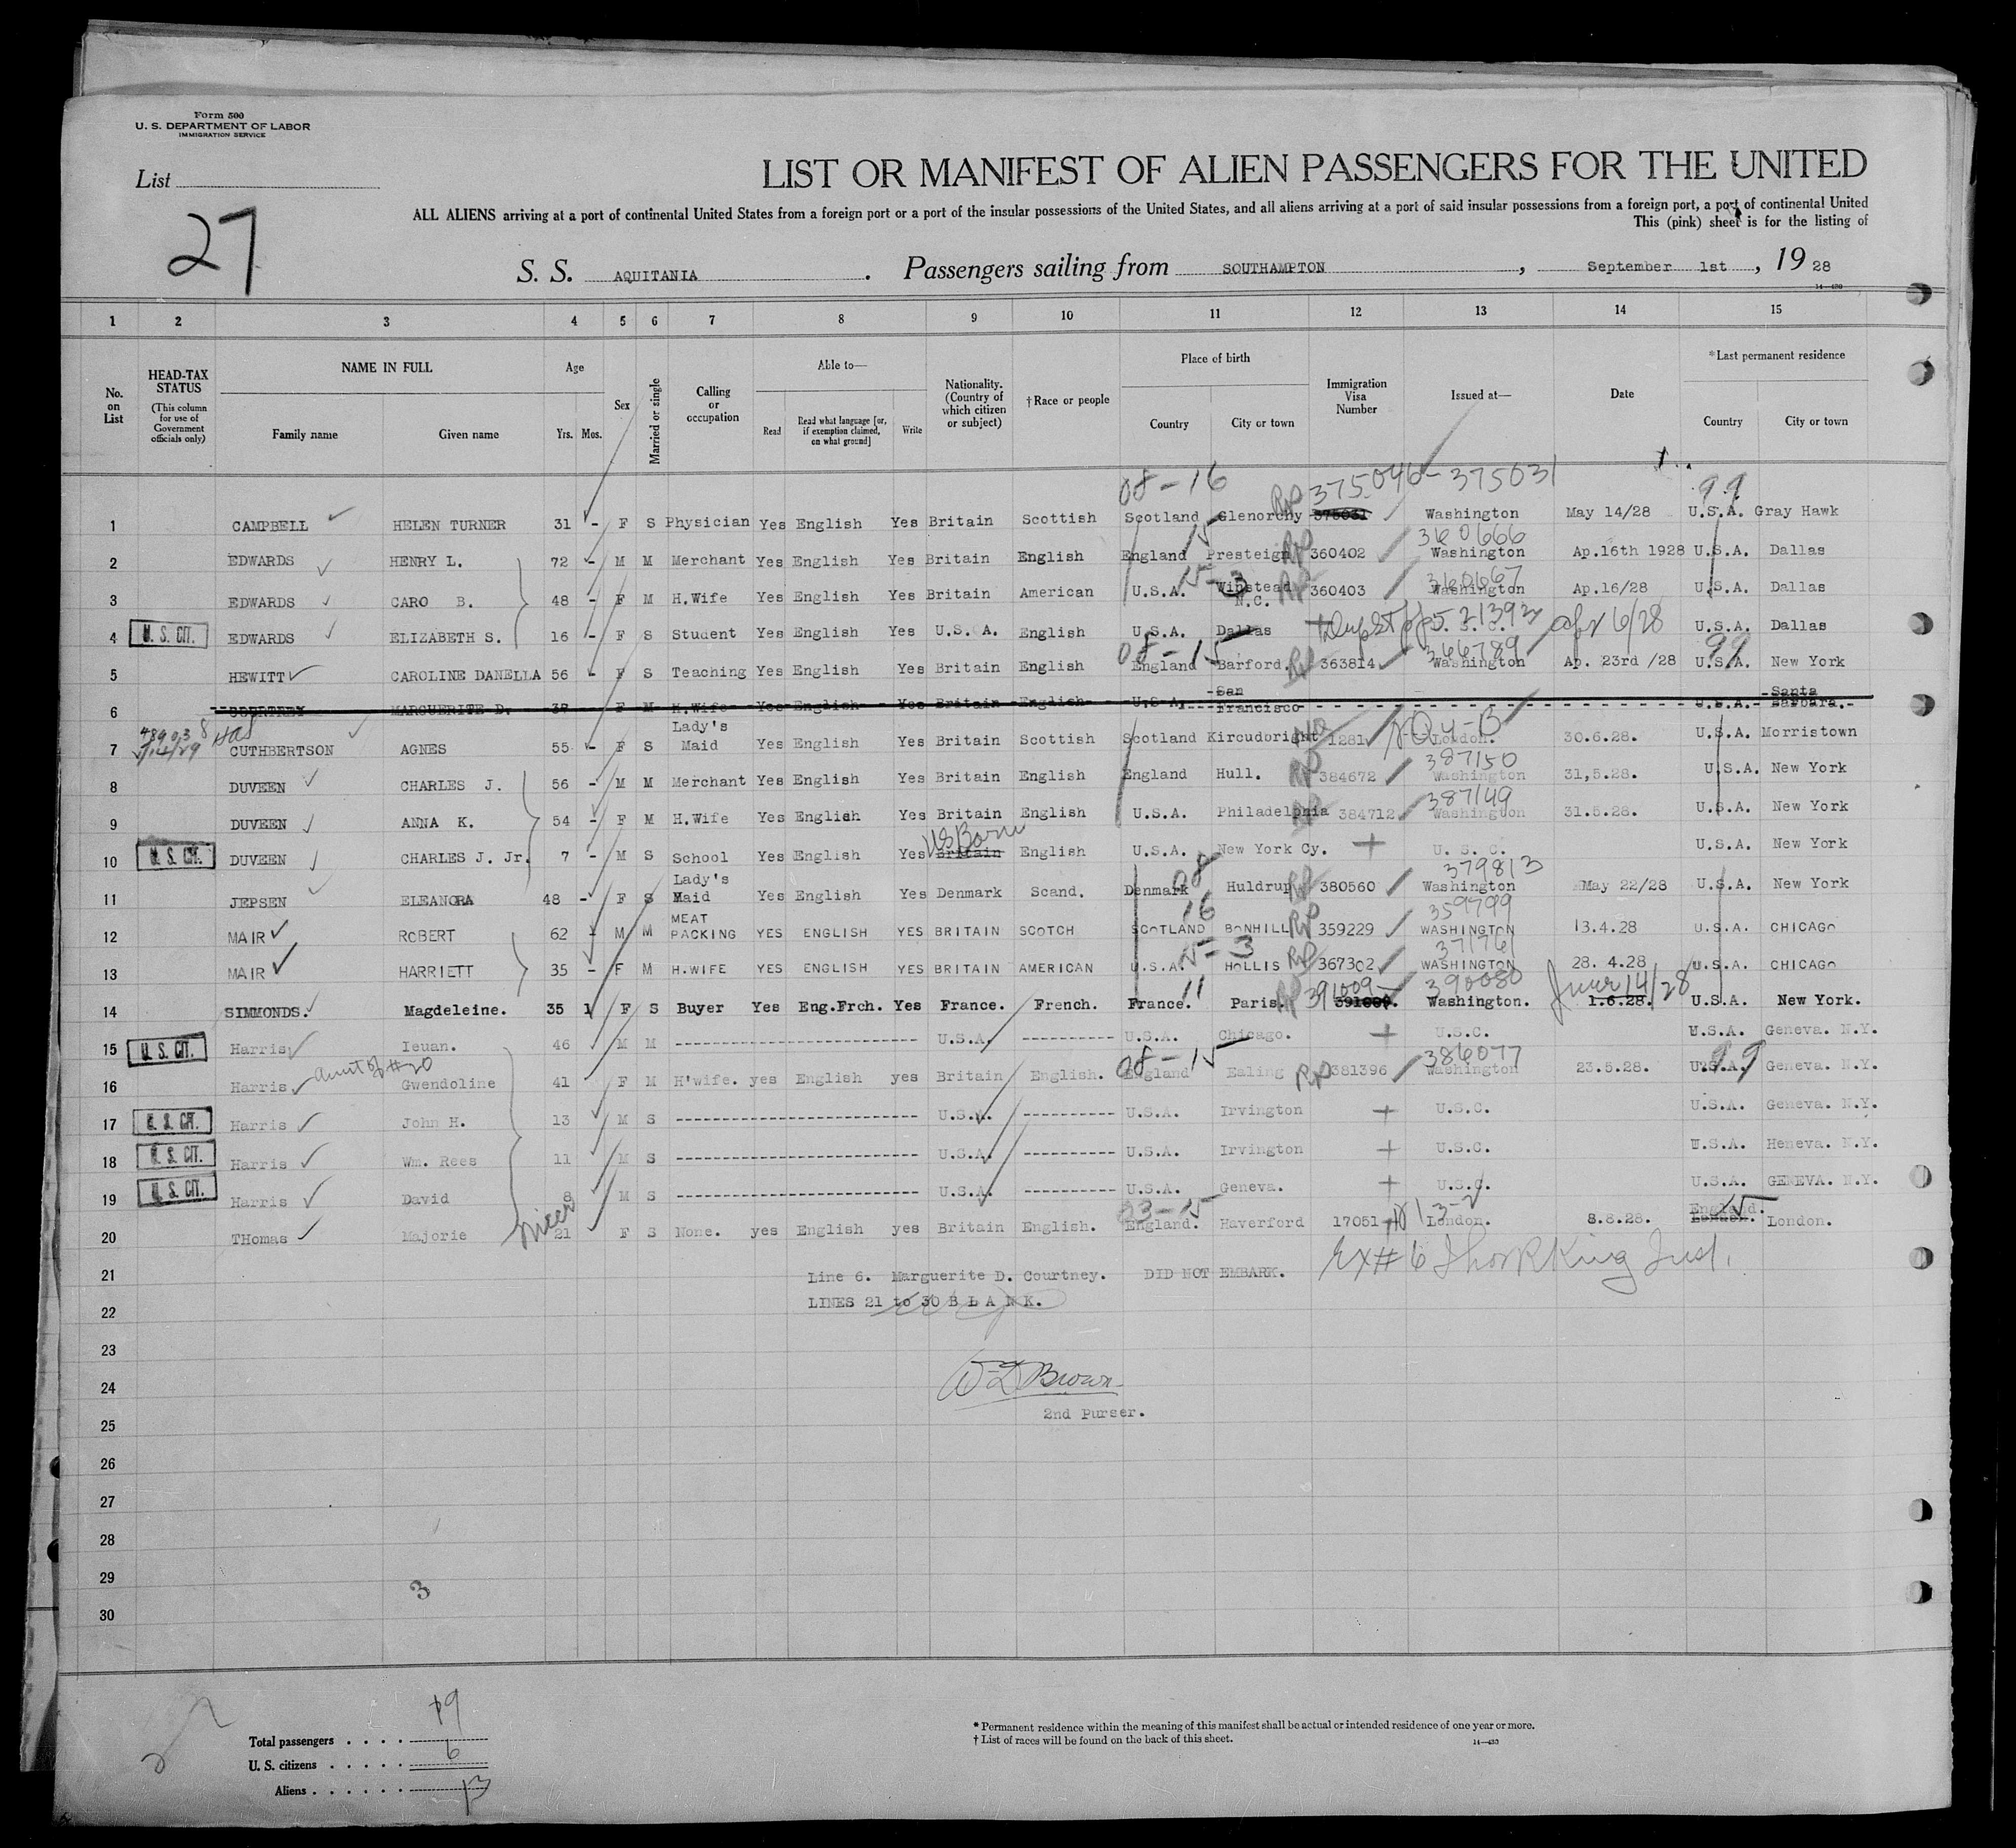 Form 500
U. S. DEPARTMENT OF LABOR
IMMIGRATION SERVICE
List
27
LIST OR MANIFEST OF ALIEN PASSENGERS FOR THE UNITED
ALL ALIENS arriving at a port of continental United States from a foreign port or a port of the insular possessions of the United States, and all aliens arriving at a port of said insular possessions from a foreign port, a port of continental United
This (pink) sheet is for the listing of
S. S. AQUITANIA. Passengers sailing from SOUTHAMPTON, September 1st, 19 28
14—430
1 2 3 4 5 6 7 8 9 10 11 12 13 14 15
No. on List
HEAD-TAX STATUS (This column for use of Government officials only)
NAME IN FULL
Family name Given name
Age
Yrs. Mos.
Sex
Married or single
Calling or occupation
Able to—
Read Read what language [or, if exemption claimed, on what ground] Write
Nationality. (Country of which citizen or subject)
†Race or people
Place of birth
Country City or town
Immigration Visa Number
Issued at—
Date
*Last permanent residence
Country City or town
08-16 375046-375031 99
1 CAMPBELL HELEN TURNER 31 - F S Physician Yes English Yes Britain Scottish Scotland Glenorchy RP 375031 Washington May 14/28 U.S.A. Gray Hawk
15 360666
2 EDWARDS HENRY L. 72 - M M Merchant Yes English Yes Britain English England Presteign RP 360402 Washington Ap.16th 1928 U.S.A. Dallas
15-3 360667
3 EDWARDS CARO B. 48 - F M H.Wife Yes English Yes Britain American U.S.A. Winstead N.C. RP 360403 Washington Ap.16/28 U.S.A. Dallas
4 U. S. CIT. EDWARDS ELIZABETH S. 16 - F S Student Yes English Yes U.S. A. English U.S.A. Dallas Apr 6/28 U.S.A. Dallas
08-15 366789 99
5 HEWITT CAROLINE DANELLA 56 - F S Teaching Yes English Yes Britain English England Barford. RP 363814 Washington Ap. 23rd /28 U.S.A. New York
6 MARGUERITE D. 37 F M H.Wife Yes English Yes Britain English U.S.A. San Francisco U.S.A. Santa Barbara.
48903 8
7 CUTHBERTSON AGNES 55 - F S Lady's Maid Yes English Yes Britain Scottish Scotland Kircudoright 1281 London. 30.6.28. U.S.A. Morristown
387150
8 DUVEEN CHARLES J. 56 - M M Merchant Yes English Yes Britain English England Hull. RP 384672 Washington 31,5.28. U.S.A. New York
387149
9 DUVEEN ANNA K. 54 - F M H.Wife Yes English Yes Britain English U.S.A. Philadelphia RP 384712 Washington 31.5.28. U.S.A. New York
US Born
10 U. S. CIT. DUVEEN CHARLES J. Jr. 7 - M S School Yes English Yes Britain English U.S.A. New York Cy. + U. S. C. U.S.A. New York
08 379813
11 JEPSEN ELEANORA 48 - F S Lady's Maid Yes English Yes Denmark Scand. Denmark Huldrup RP 380560 Washington May 22/28 U.S.A. New York
16 359799
12 MAIR ROBERT 62 M M MEAT PACKING YES ENGLISH YES BRITAIN SCOTCH SCOTLAND BONHILL RP 359229 WASHINGTON 13.4.28 U.S.A. CHICAGO
15-3 371761
13 MAIR HARRIETT 35 - F M H.WIFE YES ENGLISH YES BRITAIN AMERICAN U.S.A. HOLLIS RP 367302 WASHINGTON 28. 4.28 U.S.A. CHICAGO
11 391009 390080 June 14/28
14 SIMMONDS. Magdeleine. 35 1 F S Buyer Yes Eng.Frch. Yes France. French. France. Paris. RP 391009. Washington. 1.6.28. U.S.A. New York.
15 U. S. CIT. Harris Ieuan. 46 M M U.S.A. U.S.A. Chicago. + U.S.C. U.S.A. Geneva. N.Y.
aunt of #20 08-15 386077 99
16 Harris Gwendoline 41 F M H'wife. yes English yes Britain English. England Ealing RP 381396 Washington 23.5.28. U.S.A. Geneva. N.Y.
17 U. S. CIT. Harris John H. 13 M S U.S.A. U.S.A. Irvington + U.S.C. U.S.A. Geneva. N.Y.
18 U. S. CIT. Harris Wm. Rees 11 M S U.S.A. U.S.A. Irvington + U.S.C. U.S.A. Heneva. N.Y.
19 U. S. CIT. Harris David 8 M S U.S.A. U.S.A. Geneva. + U.S.C. U.S.A. GENEVA. N.Y.
Niece 15 England.
20 THomas Majorie 21 F S None. yes English yes Britain English. England. Haverford 17051 London. 8.8.28. London. London.
21 Line 6. Marguerite D. Courtney. DID NOT EMBARK.
22 LINES 21 to 30 B L A N K.
23
24 W L Brown
25 2nd Purser.
26
27
28
29
30
3
Total passengers 19
U. S. citizens 6
Aliens 13
* Permanent residence within the meaning of this manifest shall be actual or intended residence of one year or more.
† List of races will be found on the back of this sheet.
14—430